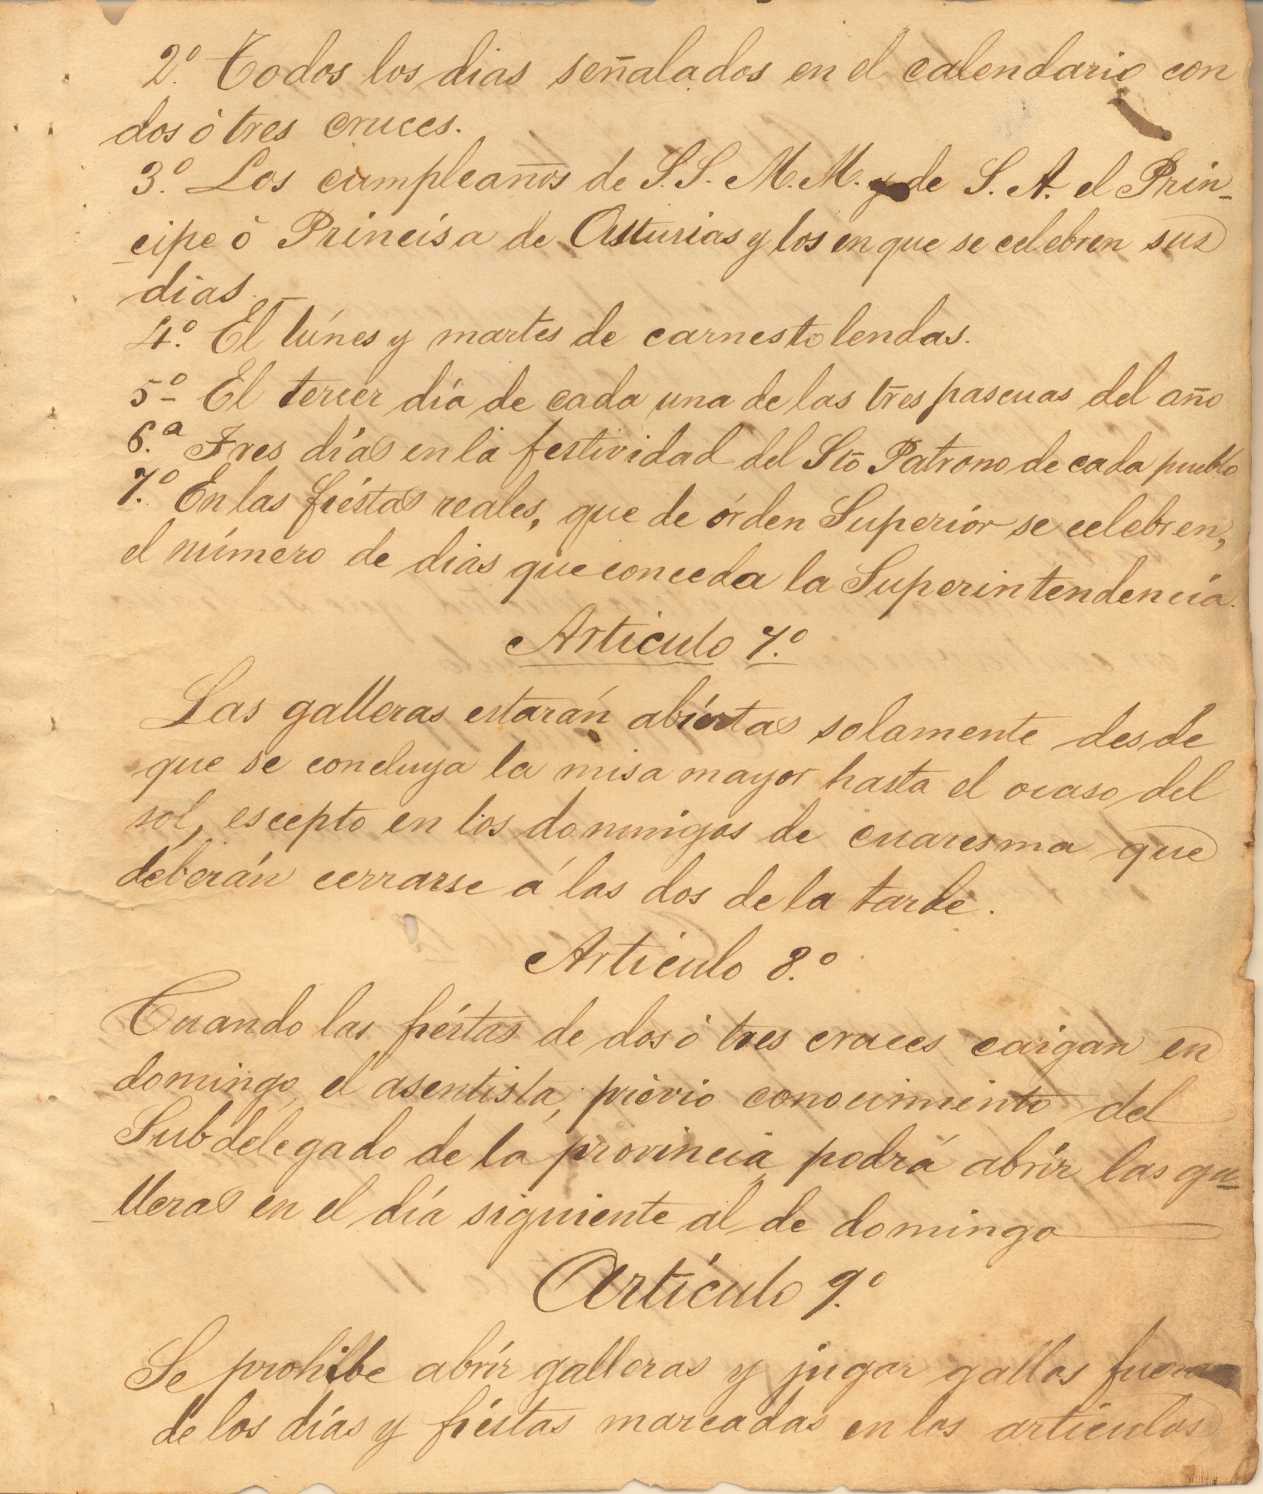 2.º Todos los dias señalados en el calendario con
dos ò tres cruces.
3.º Los cumpleaños de S.S. M.M. y de S. A. el Prin-
cipe ò Princisa de Asturias y los en que se celebren sus
dias.
4.º El lúnes y martes de carnestolendas.
5º El tercer día de cada una de las tres pascuas del año
6.ª Tres días en la festividad del Sto Patrono de cada pueblo
7.º En las fiéstas reales, que de órden Superiór se celebren,
el número de dias que conceda la Superintendencia.
Artículo 7.º
Las galleras estarán abiértas solamente desde
que se concluya la misa mayor hasta el ocaso del
sol, escepto en los domingos de cuaresma que
deberán cerrarse á las dos de la tarde.
Artículo 8.º
Cuando las fiéstas de dos ò tres cruces caigan en
domingo, el asentista, prèvio conocimiento del
Subdelegado de la provincia podrá abrír las ga-
lleras en el día siguiente al de domingo
Artículo 9.º
Se prohibe abrír galleras y jugar gallos fuera
de los días y fiéstas marcadas en los artículos